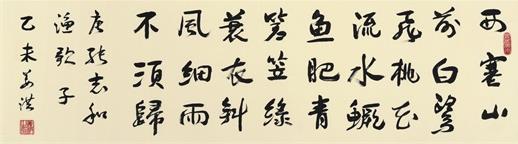 西塞山
前白鹭
飞桃花
流水鳜
鱼肥青
箬笠绿
蓑衣斜
風細雨
不須歸
唐张志和
渔歌子
乙未